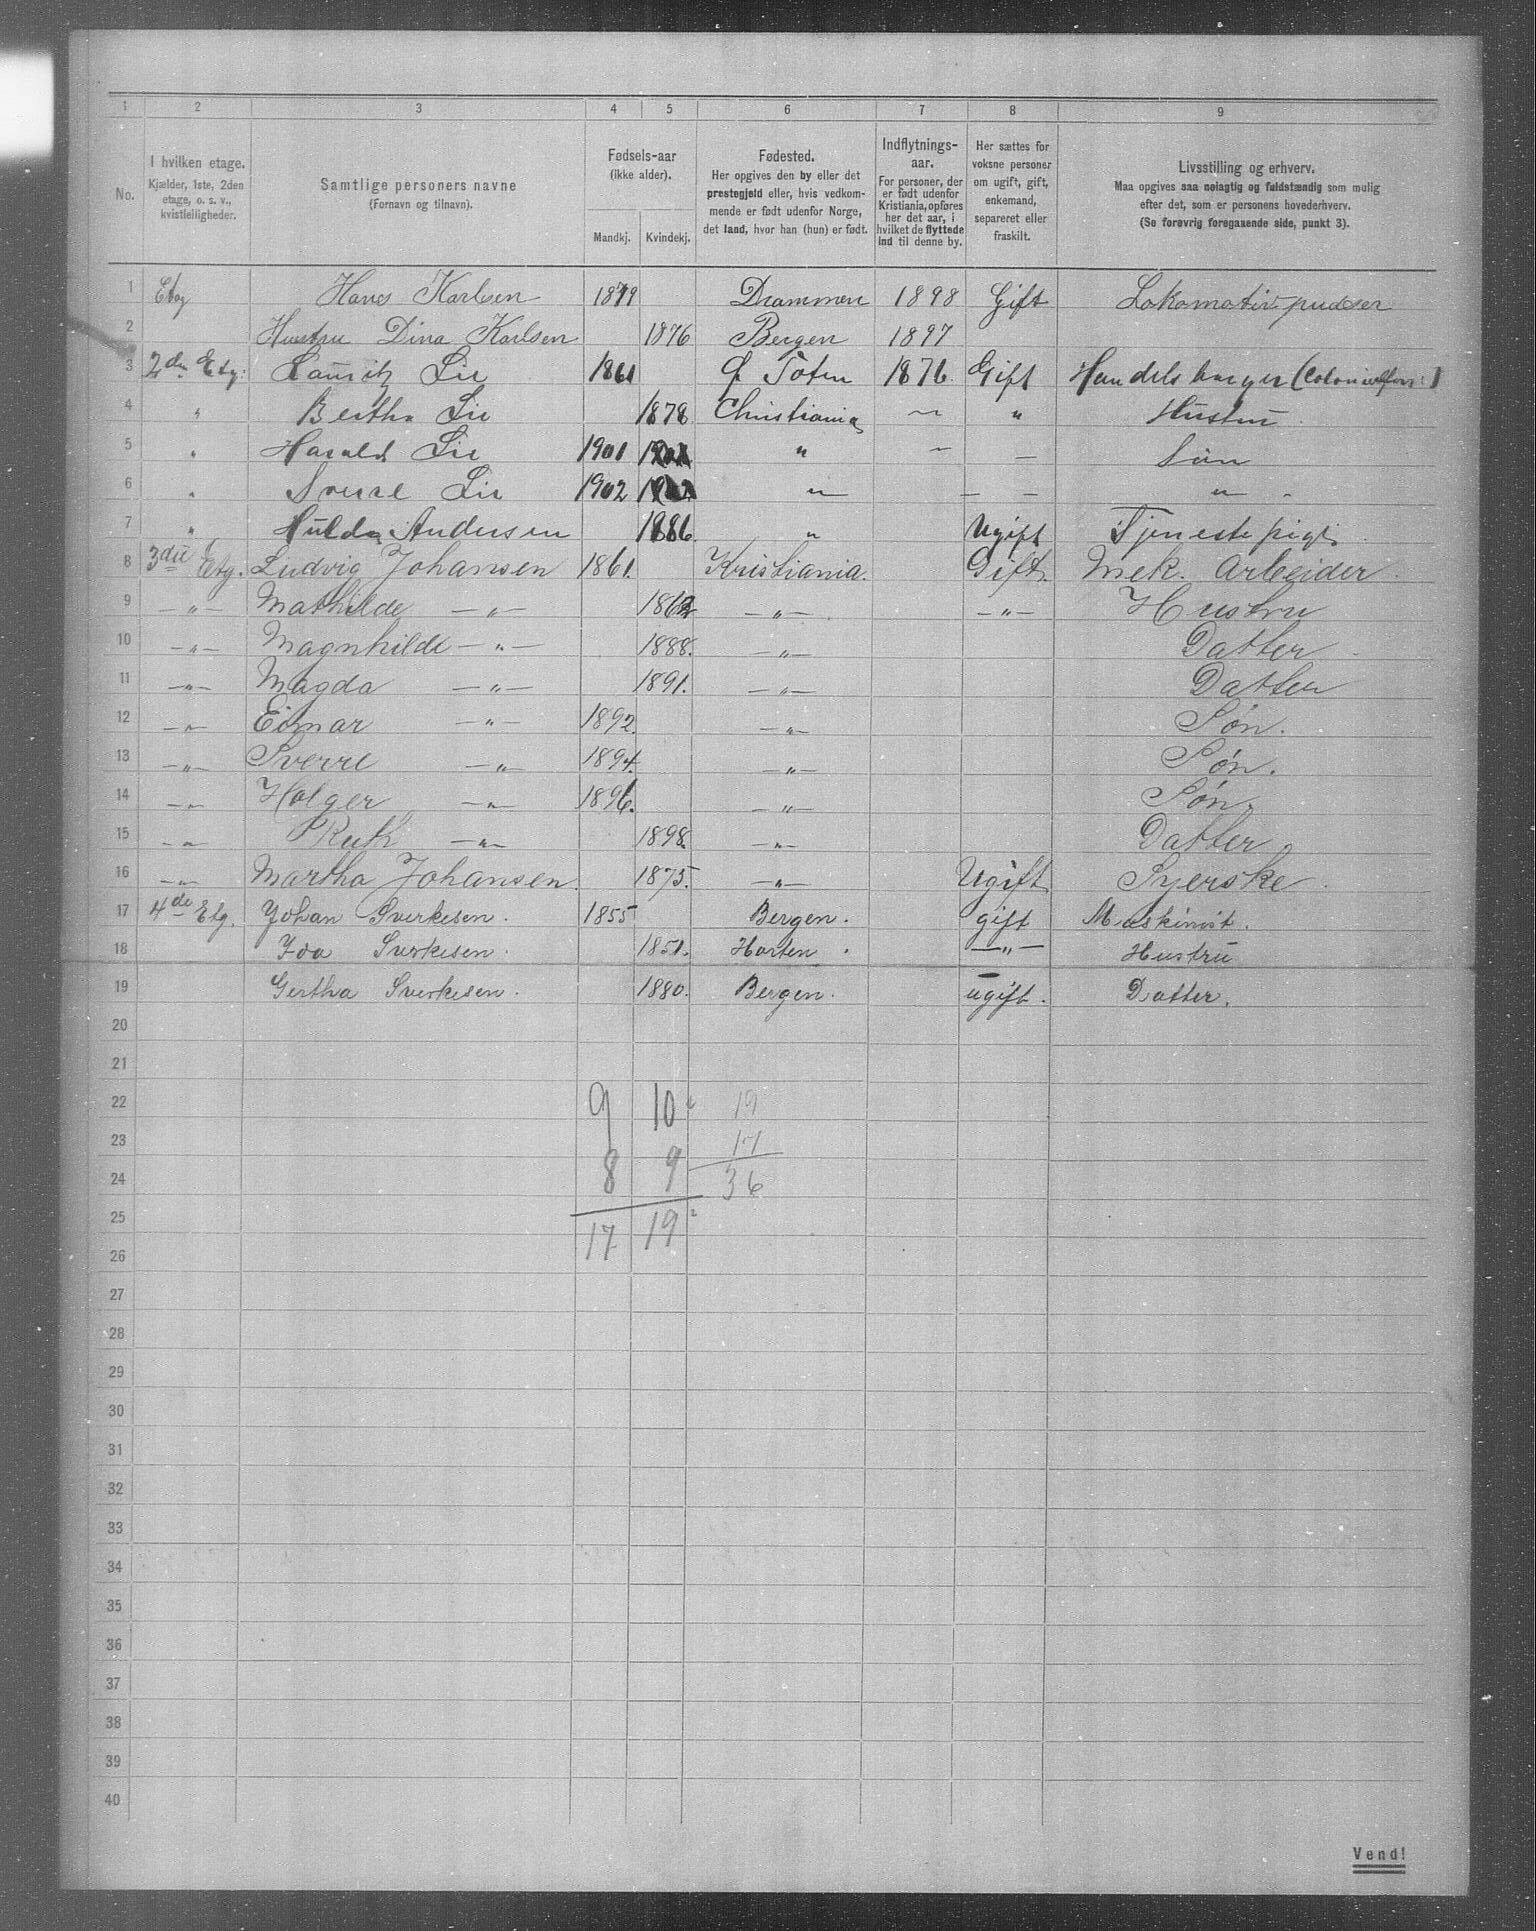 1 2 3 4 5 6 7 8 9
No.
I hvilken etage.
Kjælder, 1ste, 2den
etage, o. s. v.,
kvistleiligheder.
Samtlige personers navne
(Fornavn og tilnavn).
Fødsels-aar
(ikke alder).
Mandkj. Kvindekj.
Fødested.
Her opgives den by eller det
prestegjeld eller, hvis vedkom-
mende er født udenfor Norge,
det land, hvor han (hun) er født.
Indflytnings-
aar.
For personer, der
er født udenfor
Kristiania, opføres
her det aar, i
hvilket de flyttede
ind til denne by.
Her sættes for
voksne personer
om ugift, gift,
enkemand,
separeret eller
fraskilt.
Livsstilling og erhverv.
Maa opgives saa nøiagtig og fuldstændig som mulig
efter det, som er personens hovederhverv.
(Se forøvrig foregaaende side, punkt 3).
1 Etag Hans Karlsen 1879 Drammen 1898 Gift Lokomotivpudser
2 Hustru Dina Karlsen 1876 Bergen 1897
3 2den Etg: Lauritz Lie 1861 Ø Toten 1876 Gift Handelsborger
4 " Bertha Lie 1878 Christiania — " Hustru
5 " Harald Lie 1901 " — — Sön
6 " Sverre Lie 1902 — " — — — — " —
7 " Hulda Andersen 1886 " Ugift Tjenestepige
8 3die Etg. Ludvig Johansen 1861. Kristiania. Gift. Mek. Arbeider.
9 — " — Mathilde — " — 1862 — " — — " — Hustru
10 — " — Magnhilde — " — 1888. — " — Datter
11 — " — Magda — " — 1891. — " — Datter
12 — " — Einar — " — 1892. — " — Søn.
13 — " — Sverre — " — 1894. — " — Søn.
14 — " — Holger — " — 1896. — " — Søn.
15 — " — Ruth — " — 1898. — " — Datter.
16 — " — Martha Johansen. 1875. — " — Ugift Syerske.
17 4de Etg. Johan Sverkesen. 1855 Bergen. gift Maskinist.
18 Ida Sverkesen. 1851. Horten. — " — Hustru
19 Gertha Sverkesen. 1880. Bergen. ugift. Datter.
20
21
22 9 10 19
23 17
24 8 9 36
25 17 19
26
27
28
29
30
31
32
33
34
35
36
37
38
39
40
Vend!